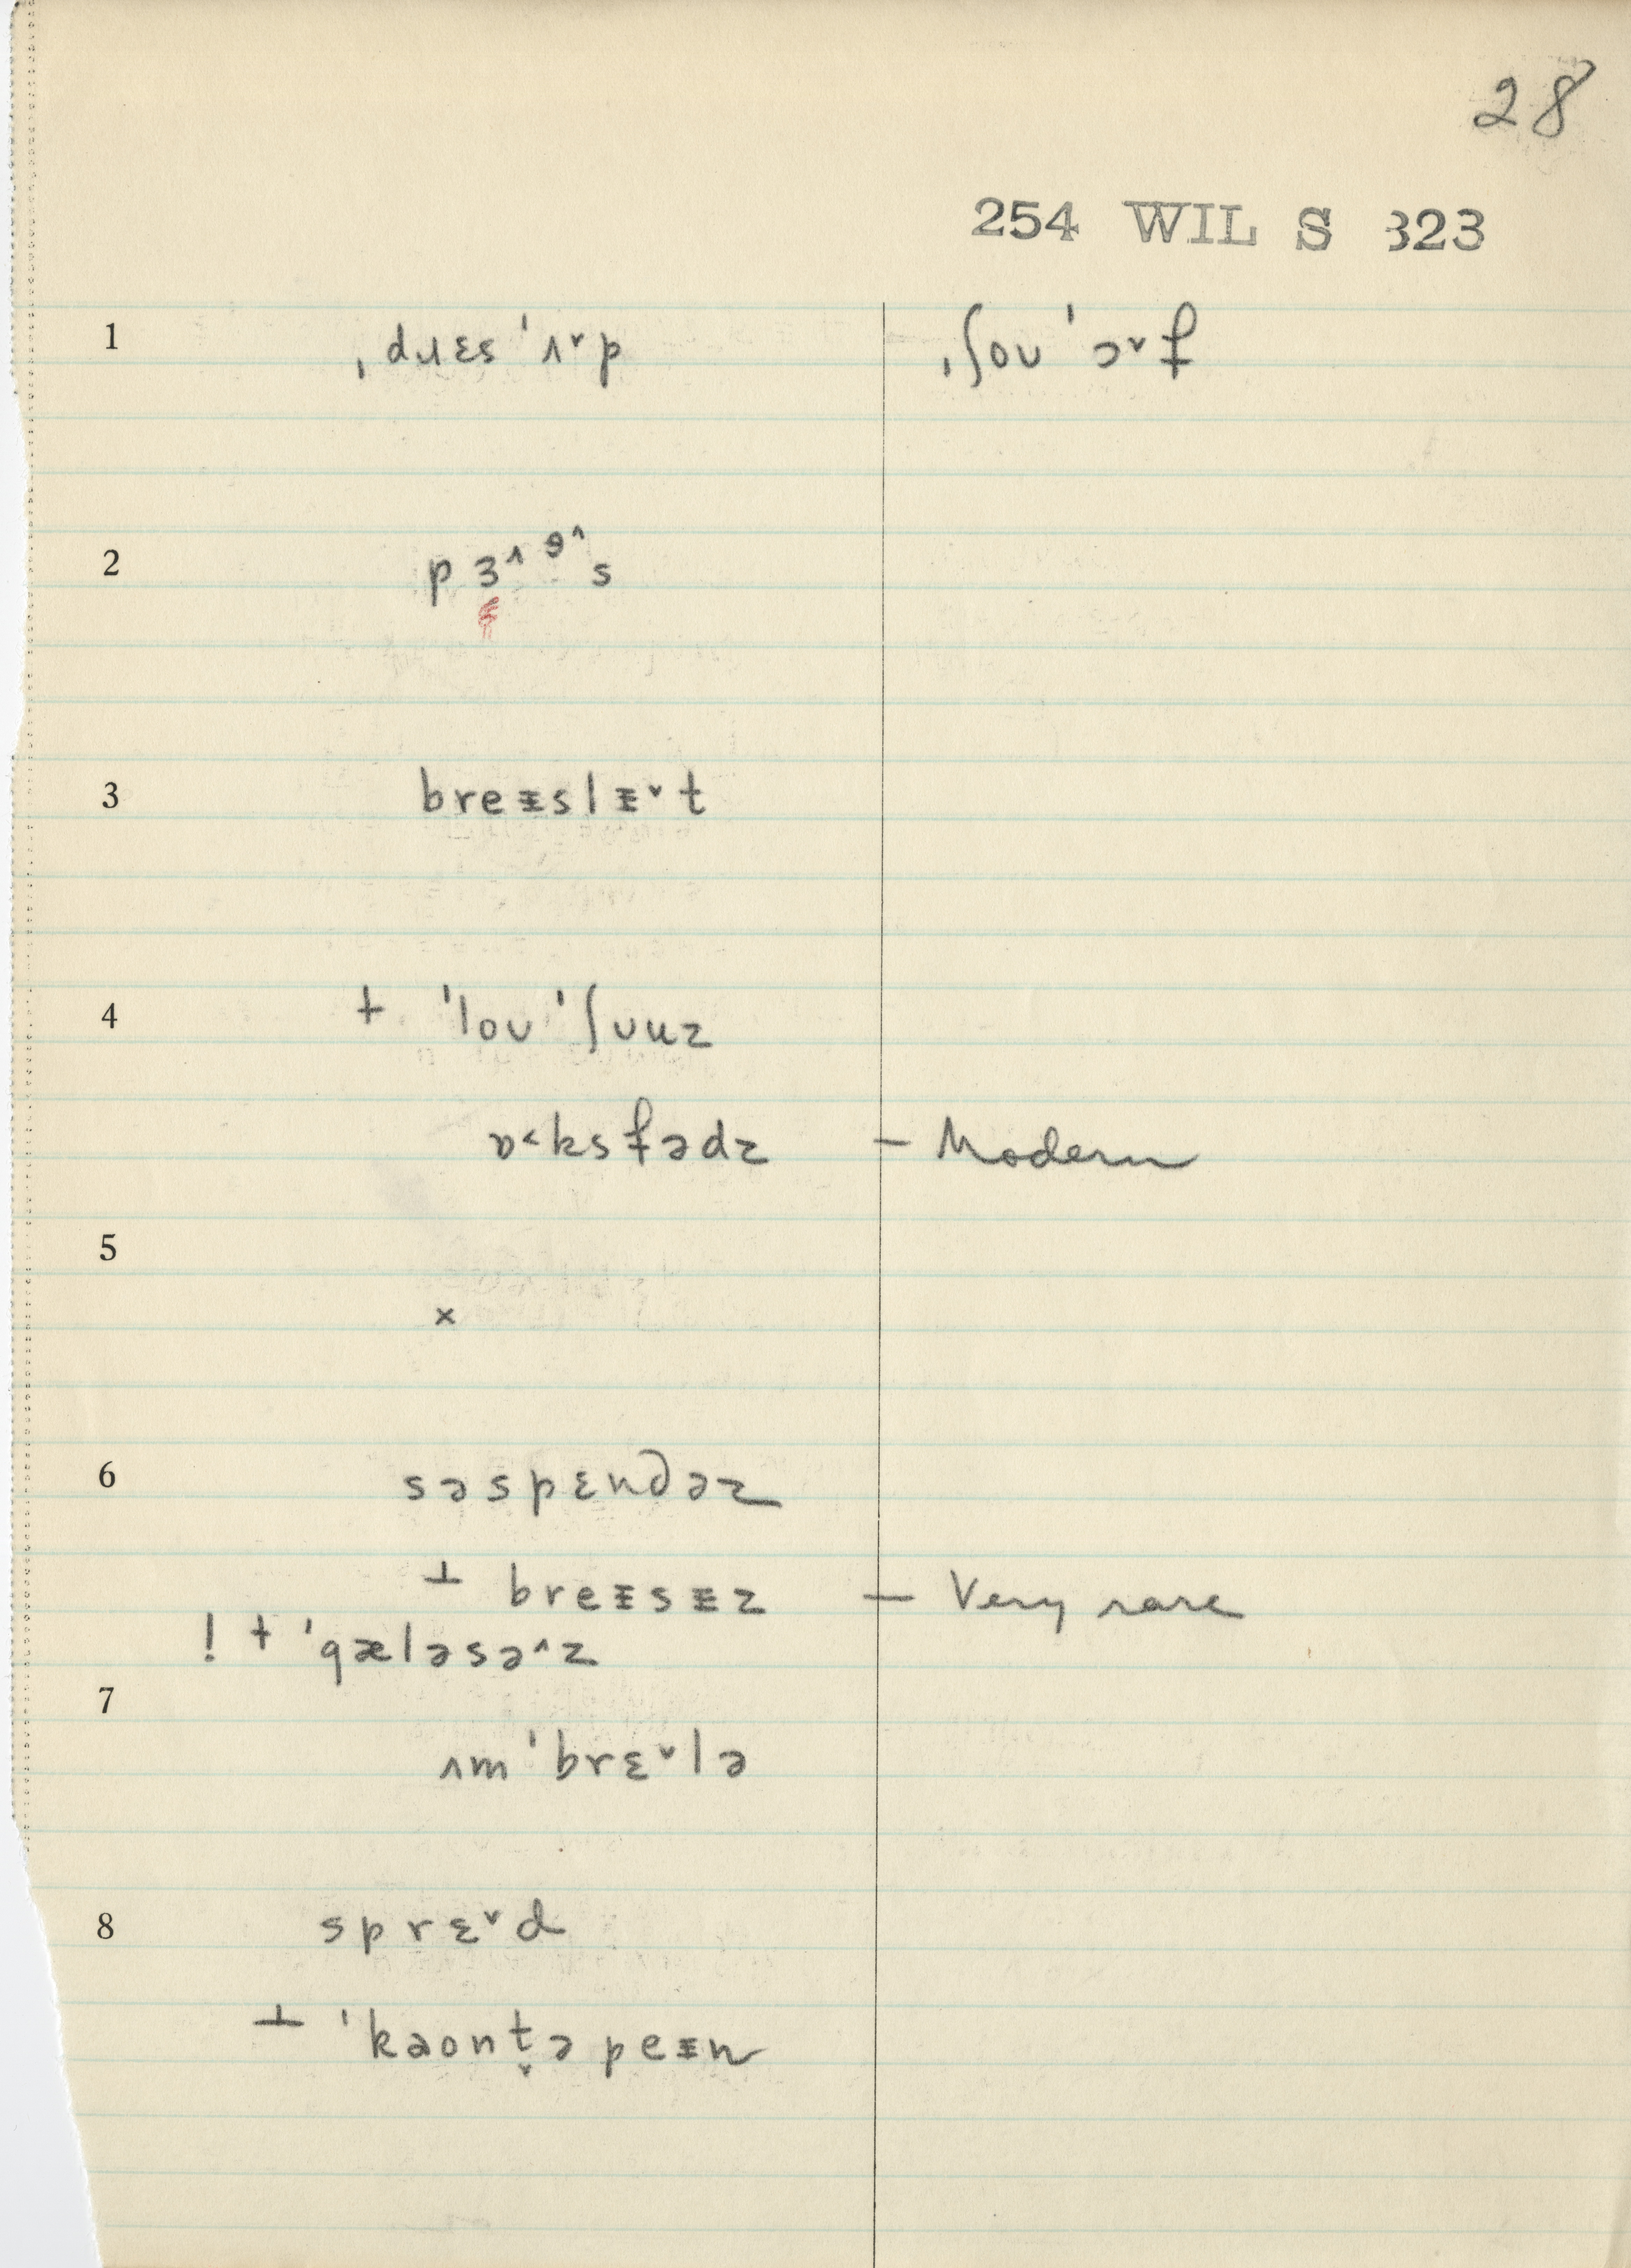 28
254 WIL S 323
1 ˌdɹɛs ˈʌ˅p ˌʃoʊ ˈɔ˅f
2 p ɜ˄ ə˄ s
3 breᵻslᵻ˅t
4 + ˈloʊ ˈʃuuz
ɒ˂ksfədz — Modern
5
x
6 səspɛndəz
⊥ breᵻsᵻz — Very rare
! + ˈgæləsə˄z
7
ʌmˈbrɛ˅lə
8 sprɛ˅d
⊥ ˈkaʊnt̬əpeᵻn